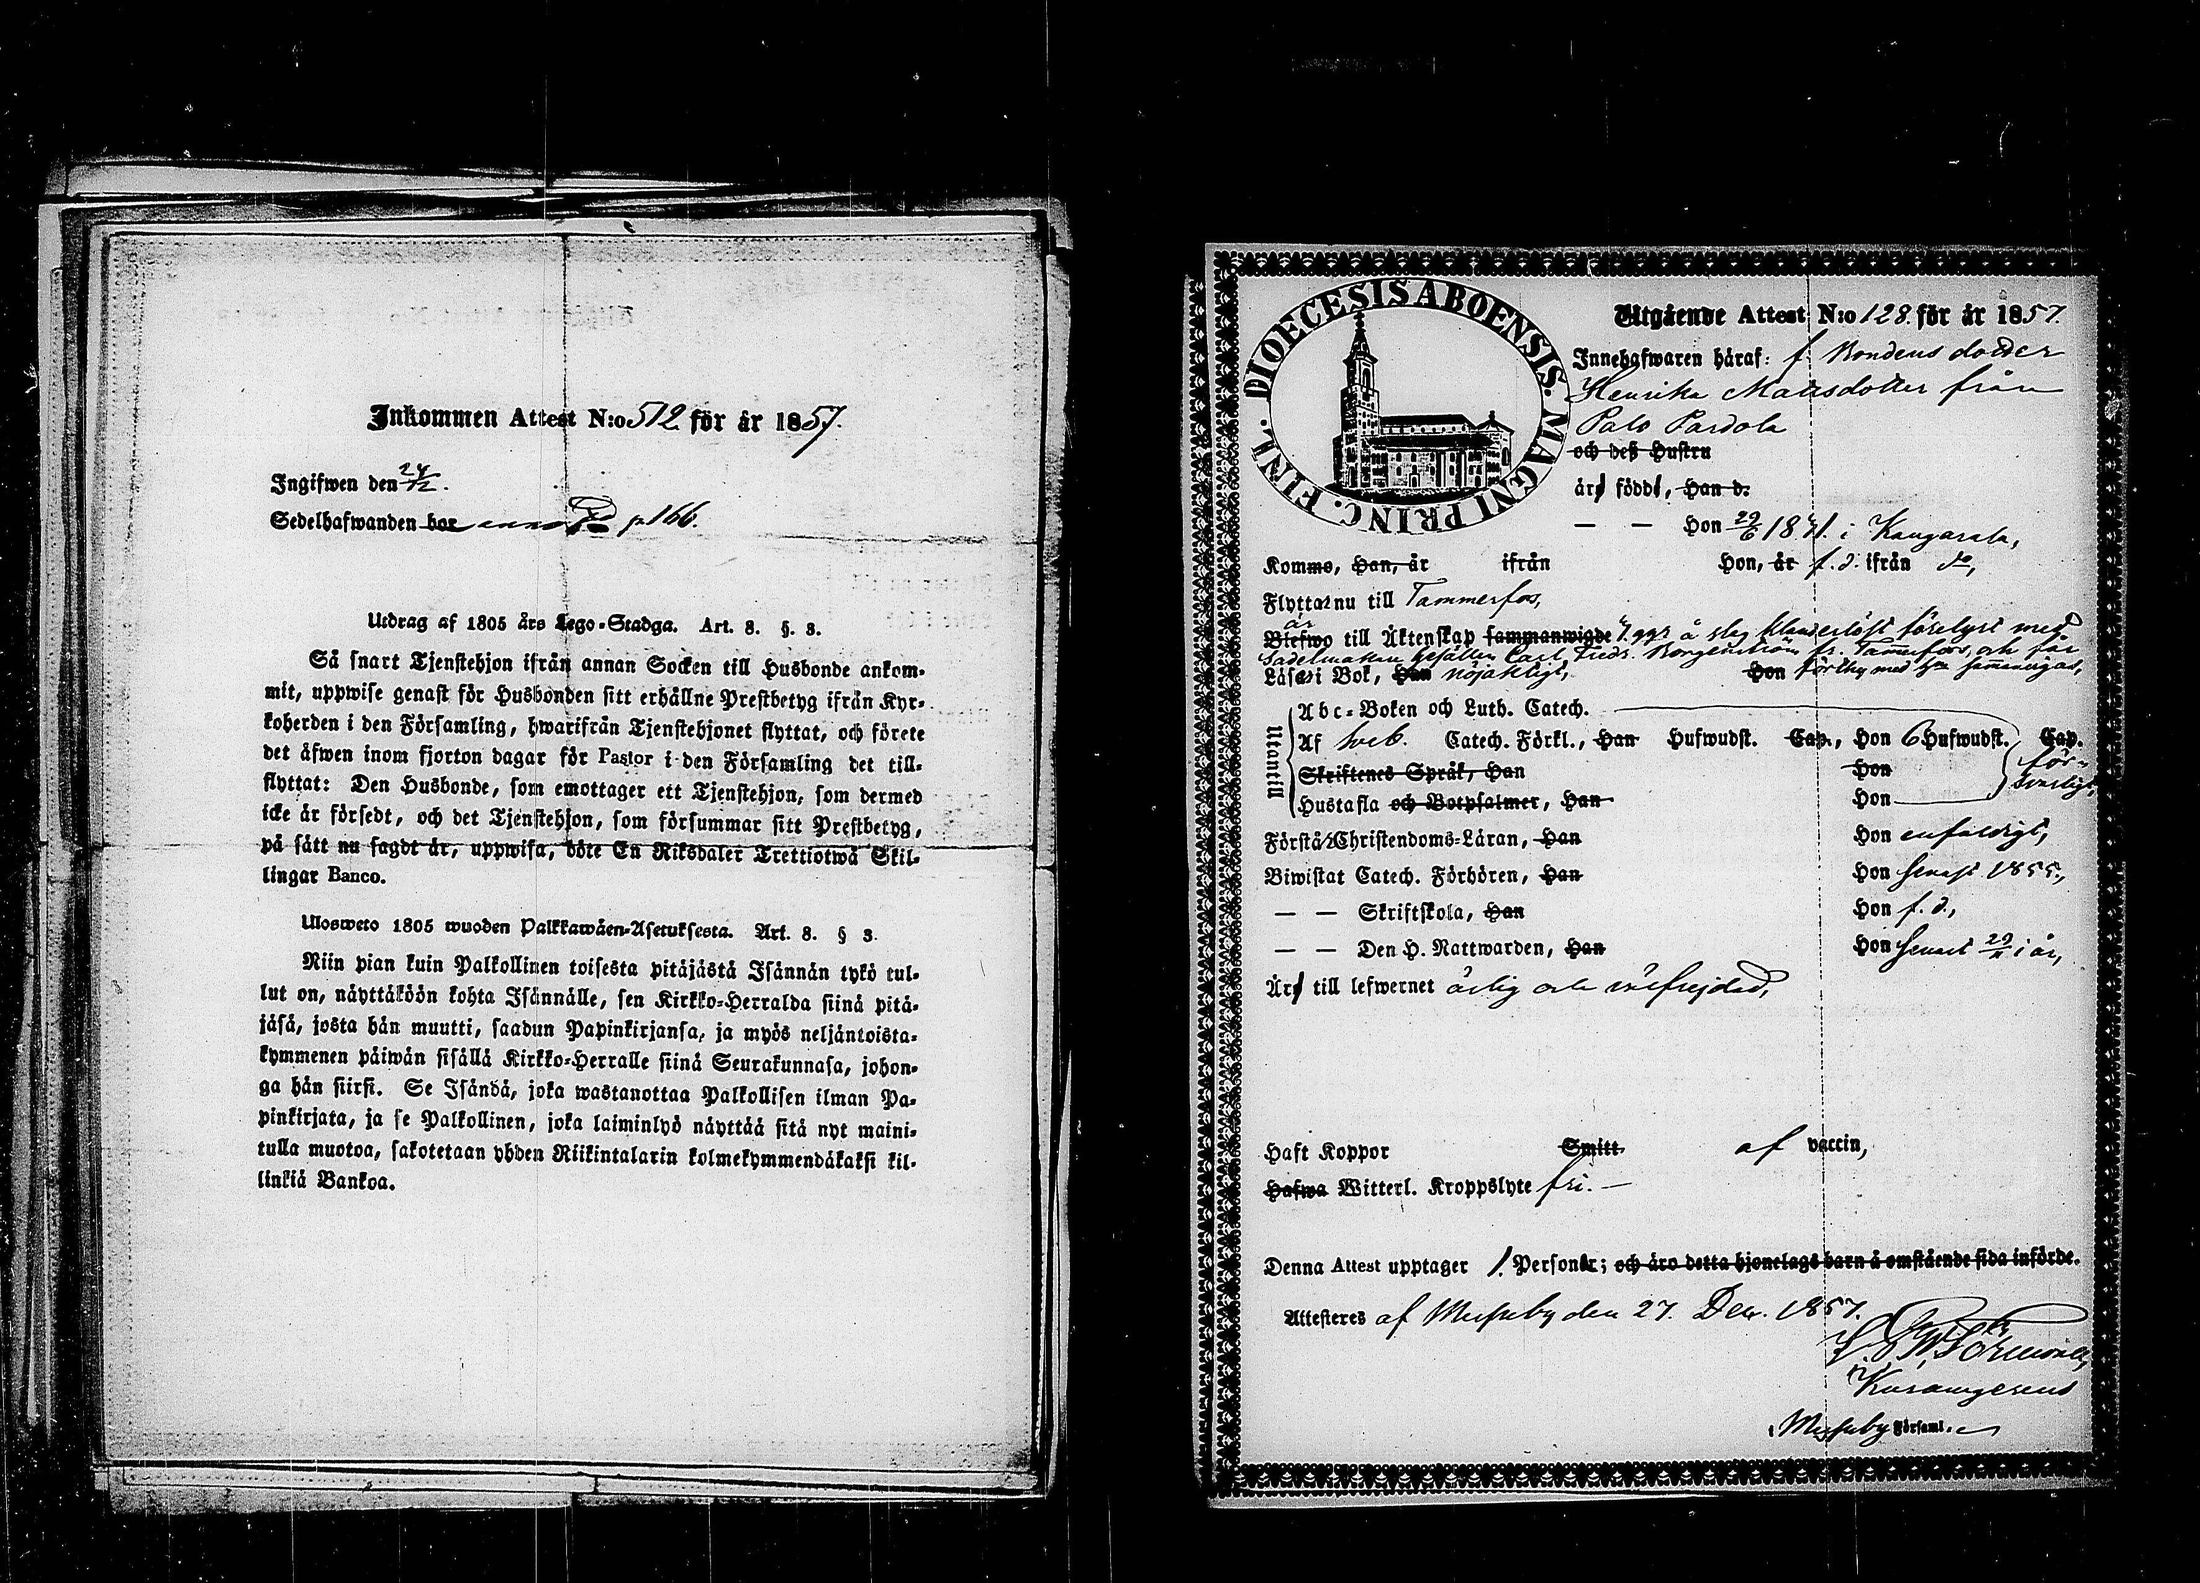 Inkommen Attest N:o 512 för år 1857.
Ingifwen den 24/12.
Sedelhafwanden bor p 166.
Utdrag af 1805 års Lego-Stadga. Art. 8. §. 3.
Så snart Tjenstehjon ifrån annan Socken till Husbonde ankom-
mit, uppwise genast för Husbonden sitt erhållne Prestbetyg ifrån Kyr-
koherden i den Församling, hwarifrån Tjenstehjonet flyttat, och förete
det äfwen inom fjorton dagar för Pastor i den Församling det till-
flyttat: Den Husbonde, som emottager ett Tjenstehjon, som dermed
icke är försedt, och det Tjenstehjon, som försummar sitt Prestbetyg,
på sätt nu sagdt är, uppwisa, böte En Riksdaler Trettiotwå Skil-
lingar Banco.
Ulosweto 1805 wuoden Palkkawäen-Asetuksesta. Art. 8. § 3.
Niin pian kuin Palkollinen toisesta pitäjästä Isännän tykö tul-
lut on, näyttäköön kohta Isännälle, sen Kirkko-Herralda siinä pitä-
jäsä, josta hän muutti, saadun Papinkirjansa, ja myös neljäntoista-
kymmenen päiwän sisällä Kirkko-Herralle siinä Seurakunnasa, johon-
ga hän siirsi. Se Isändä, joka wastanottaa Palkollisen ilman Pa-
pinkirjata, ja se Palkollinen, joka laiminlyö näyttää sitä nyt maini-
tulla muotoa, sakotetaan yhden Riikintalarin kolmekymmendäkaksi kil-
linkiä Bankoa.
DIOECESIS ABOENSIS. MAGNI PRINC. FINL.
Utgående Attest N:o 128. för år 1857.
Innehafwaren häraf: f. Bondens dotter
Henrika Matsdotter från
Palo Pardola
och deß Hustru
är född, Han d.
— — Hon 29/6 1831. i Kangasala,
Komme, Han, år ifrån Hon, år f. d. ifrån do,
Flyttar nu till Tammerfors,
är
Blefwo till Äktenskap sammanwigde 3. ggr å slag klanderlöst förelyst med
Sadelmakare Gesällen Carl Fredr. Borgenström fr. Tammerfors, och får
Läser i Bok, Han nöjaktigt, Hon förthy med hm sammanvigas,
Utantill
Abc-Boken och Luth. Catech.
Af Sveb. Catech. Förkl., Han Hufwudst. Cap., Hon 6 Hufwudst. Cap.
Skriftenes Språk, Han Hon för-
svarligt,
Hustafla och Botpsalmer, Han Hon
Förstå Christendoms-Läran, Han Hon enfaldigt,
Biwistat Catech. Förhören, Han Hon senast 1855.,
— — Skriftskola, Han Hon f. d.,
— — Den H. Nattwarden, Han Hon senast 29/11 i år,
Är till lefwernet ärlig och välfrejdad,
Haft Koppor Smitt af vaccin,
Hafwa Witterl. Kroppslyte fri. —
Denna Attest upptager 1. Person; och äro detta hjonelags barn å omstående sida införde.
Attesteres af Messuby den 27. Dec. 1857.
i Messuby Församl.